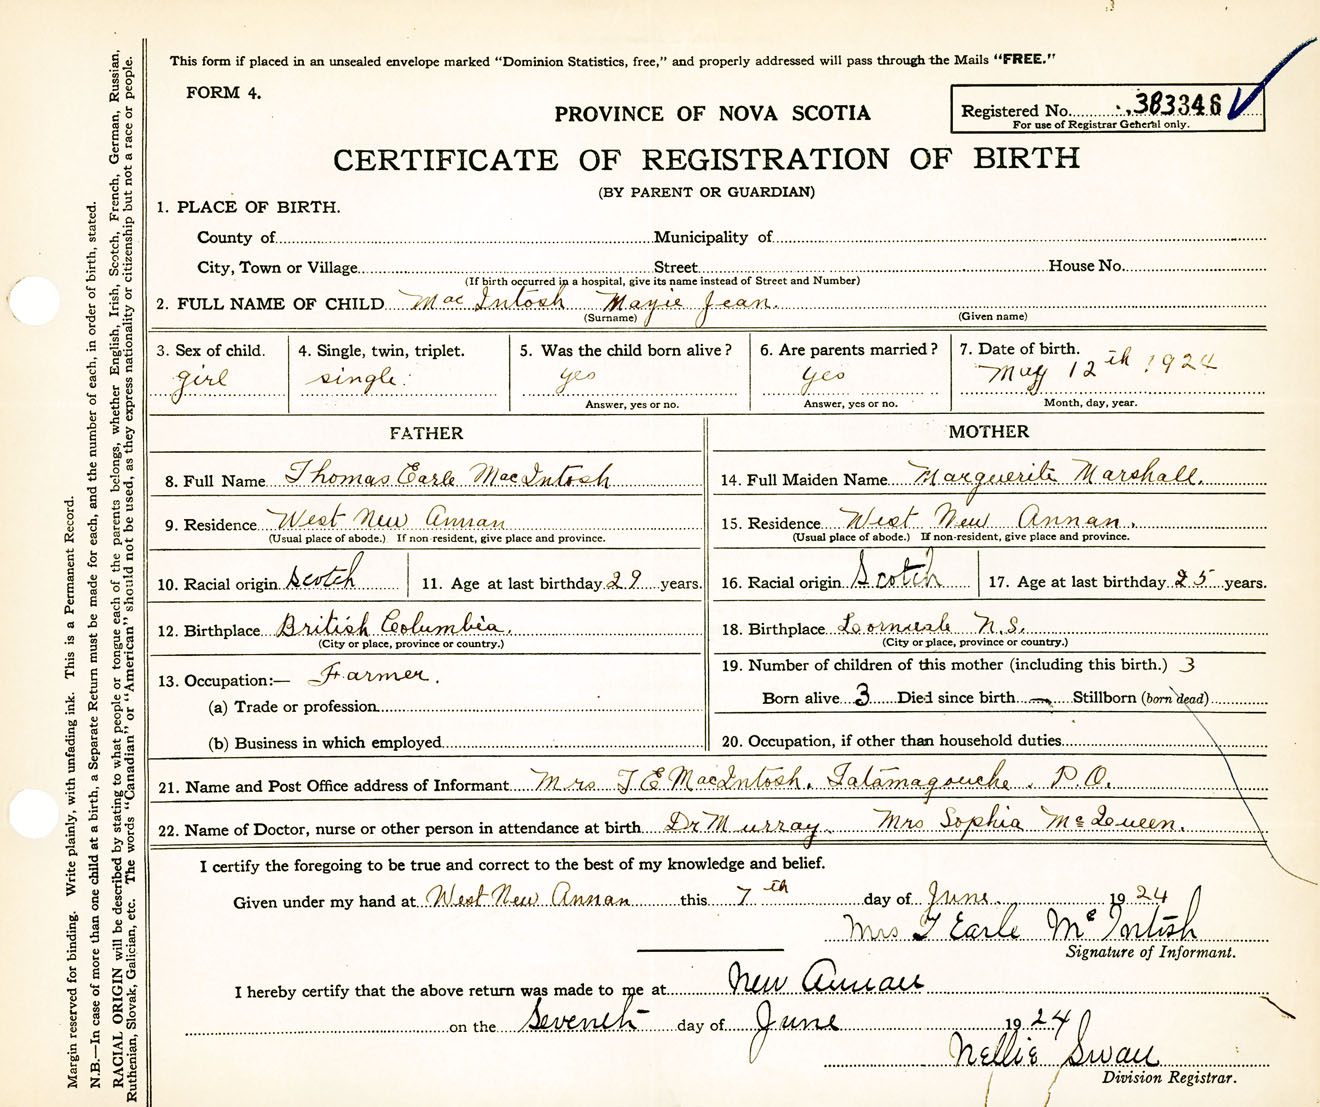 This form if placed in an unsealed envelope marked “Dominion Statistics, free,” and properly addressed will pass through the Mails “FREE.”
FORM 4.
PROVINCE OF NOVA SCOTIA
Registered No. 383346
For use of Registrar General only.
CERTIFICATE OF REGISTRATION OF BIRTH
(BY PARENT OR GUARDIAN)
1. PLACE OF BIRTH.
County of Municipality of
City, Town or Village Street House No.
(If birth occurred in a hospital, give its name instead of Street and Number)
2. FULL NAME OF CHILD MacIntosh Mayie Jean.
(Surname) (Given name)
3. Sex of child. 4. Single, twin, triplet. 5. Was the child born alive? 6. Are parents married? 7. Date of birth.
girl single. yes yes May 12th 1924
Answer, yes or no. Answer, yes or no. Month, day, year.
FATHER MOTHER
8. Full Name Thomas Earle MacIntosh 14. Full Maiden Name Marguerite Marshall.
9. Residence West New Annan 15. Residence West New Annan.
(Usual place of abode.) If non-resident, give place and province. (Usual place of abode.) If non-resident, give place and province.
10. Racial origin Scotch 11. Age at last birthday 29 years. 16. Racial origin Scotch 17. Age at last birthday 25 years.
12. Birthplace British Columbia. 18. Birthplace N.S.
(City or place, province or country.) (City or place, province or country.)
13. Occupation:— Farmer. 19. Number of children of this mother (including this birth.) 3
(a) Trade or profession Born alive 3 Died since birth — Stillborn (born dead)
(b) Business in which employed 20. Occupation, if other than household duties
21. Name and Post Office address of Informant Mrs T E MacIntosh, Tatamagouche. P.O.
22. Name of Doctor, nurse or other person in attendance at birth Dr Murray Mrs Sophia McQueen.
I certify the foregoing to be true and correct to the best of my knowledge and belief.
Given under my hand at West New Annan this 7th day of June. 1924
Mrs T Earle McIntosh
Signature of Informant.
I hereby certify that the above return was made to me at New Annan
on the Seventh day of June 1924
Nellie Swan
Division Registrar.
Margin reserved for binding. Write plainly, with unfading ink. This is a Permanent Record.
N.B.—In case of more than one child at a birth, a Separate Return must be made for each, and the number of each, in order of birth, stated.
RACIAL ORIGIN will be described by stating to what people or tongue each of the parents belongs, whether English, Irish, Scotch, French, German, Russian,
Ruthenian, Slovak, Galician, etc. The words “Canadian” or “American” should not be used, as they express nationality or citizenship but not a race or people.